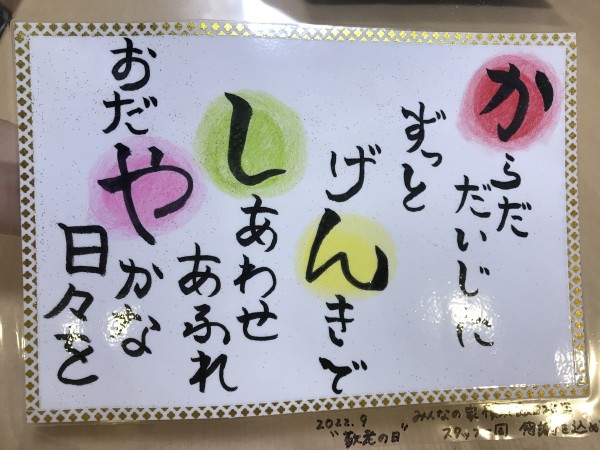 からだ
だいじに
ずっと
げんきで
しあわせ
あふれ
おだやかな
日々を
2022.9
"敬老の日"
みんなの家
スタッフ一同 感謝を込め